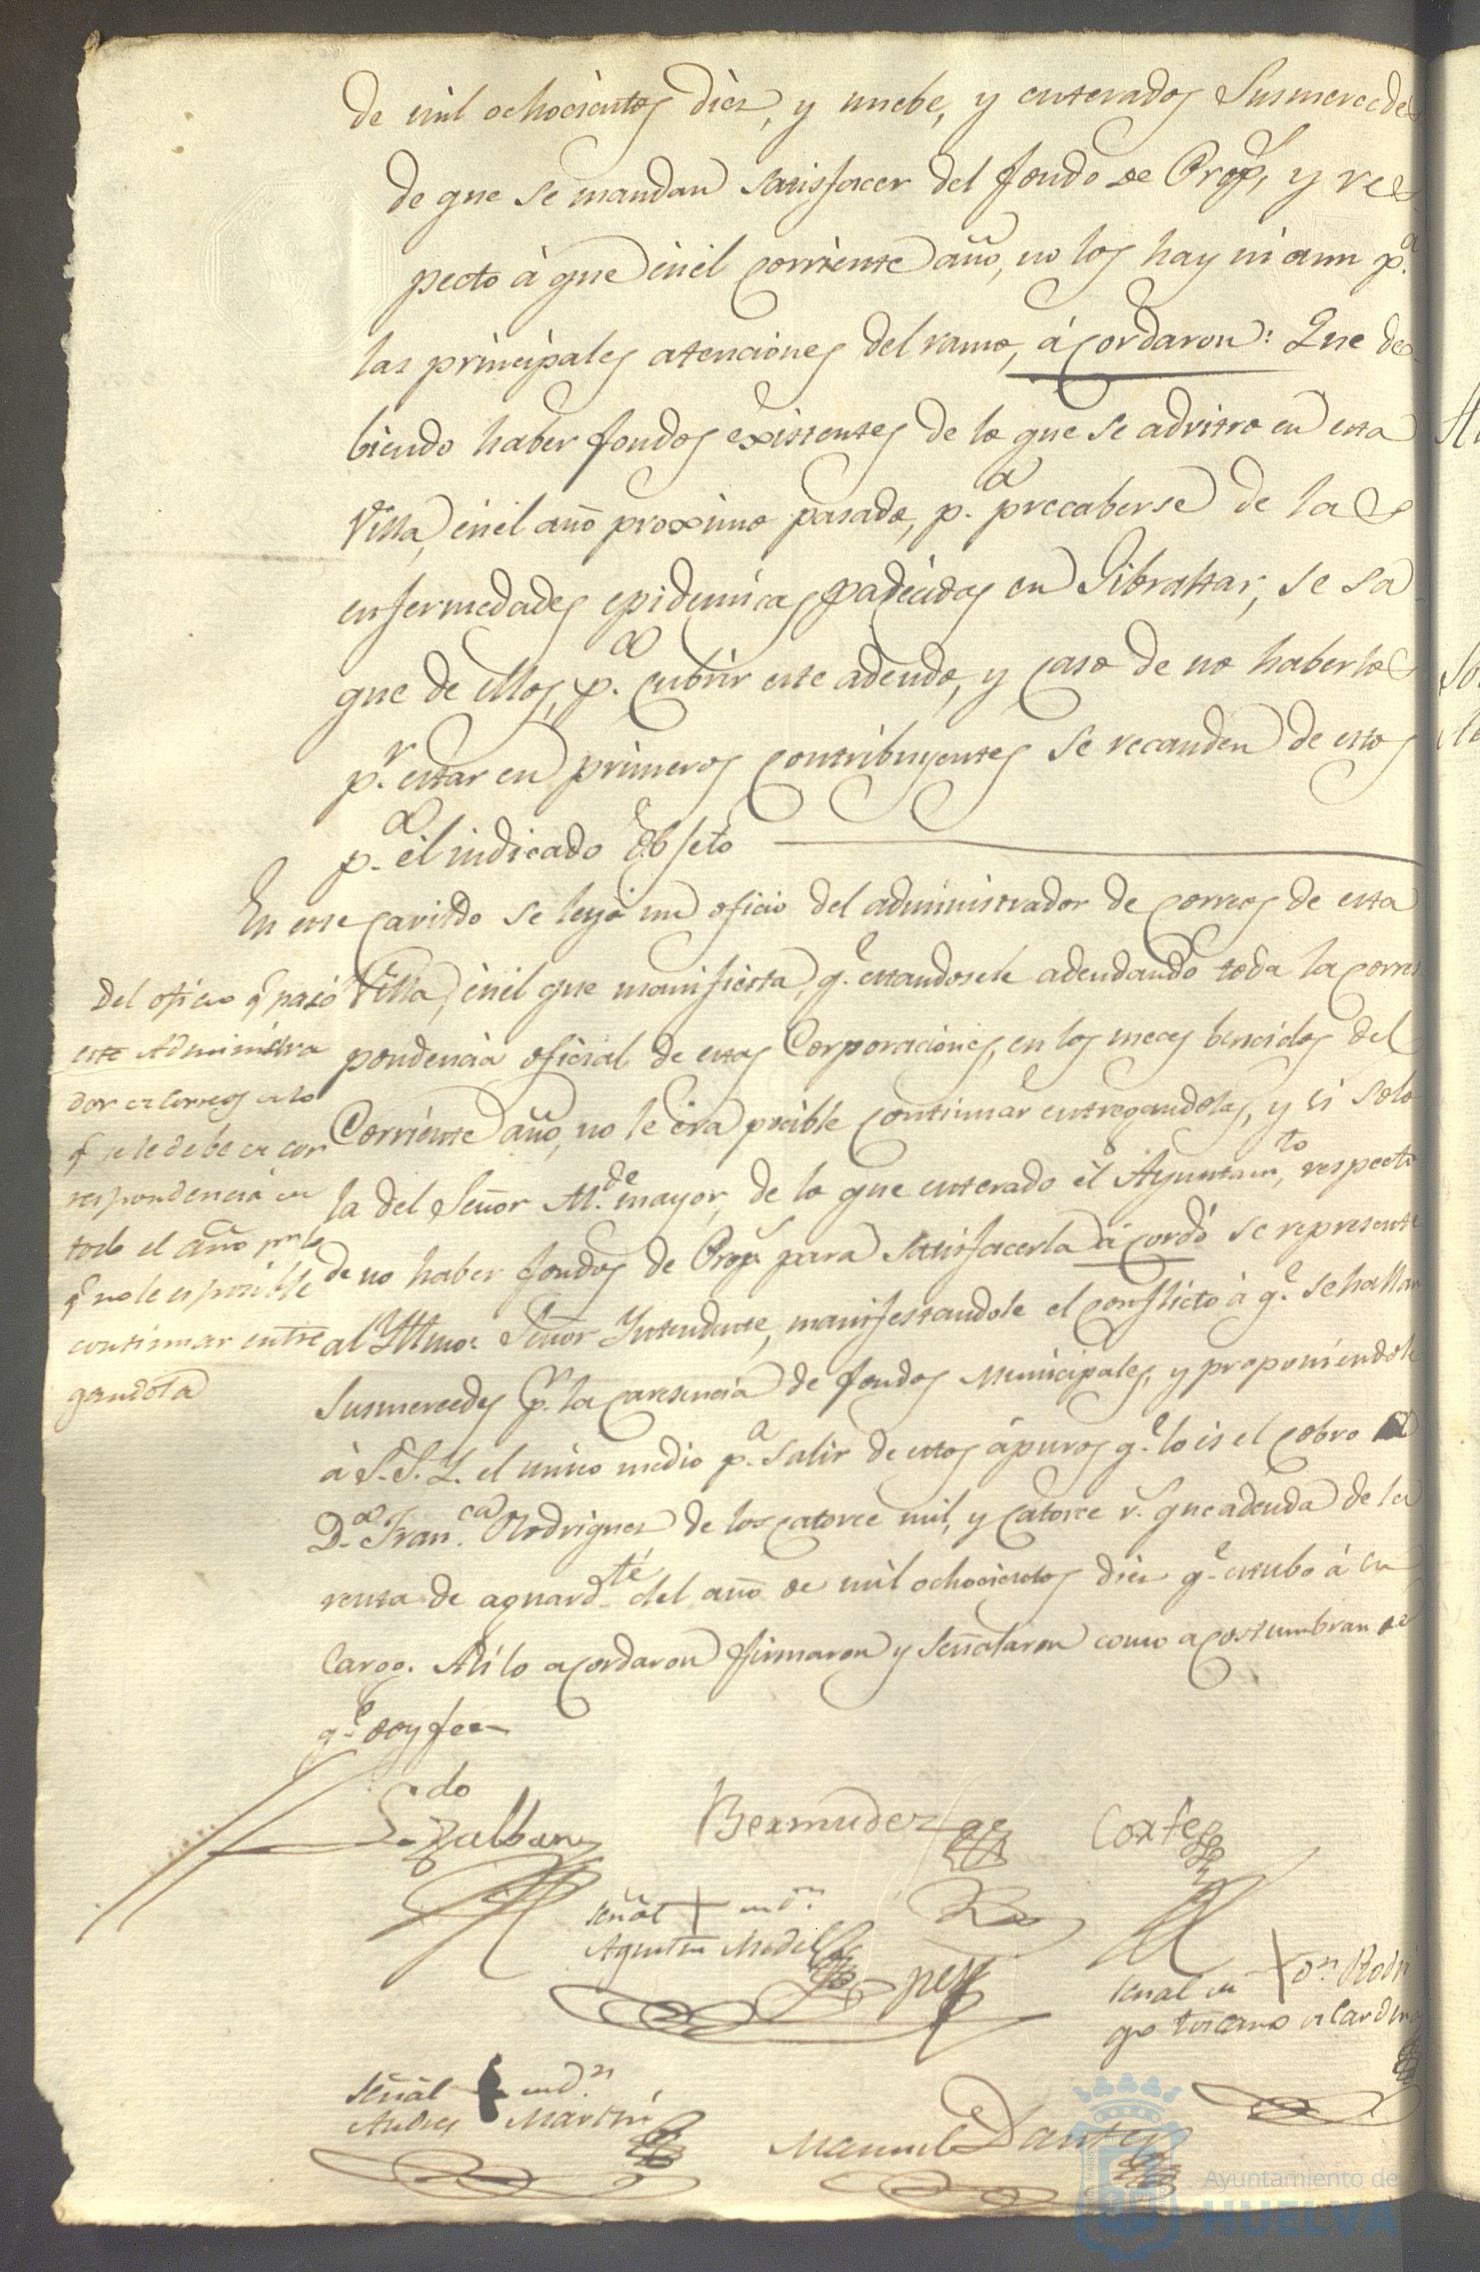 de mil ochocientos diez, y nuebe, y enterados Susmercedes
de que se mandan satisfacer del fondo de Prop.s, y res-
pecto à que en el corriente año, no los hay ni aun p.a
las principales atenciones del ramo, acordaron: Que de-
biendo haber fondos existentes de lo que se advitro en esta
Villa, en el año proximo pasado, p.a precaberse de las
enfermedades epidemicas padecidas en Gibraltar, se sa-
que de ellos, p.a cubrir este adeudo, y caso de no haberlos
p.r estar en primeros contribuyentes se recauden de estos
p.a el indicado Objeto
En este cavildo se leyó un oficio del administrador de correos de esta
Villa, en el que manifiesta, q.e estandosele adeudando toda la corres
pondencia oficial de estas Corporaciones, en los meces bencidos del
Corriente año, no le era pocible continuar entregandolas, y si solo
la del Señor Alc.de mayor, de lo que enterado el Ayuntam.to, respecto
de no haber fondos de Prop.s para satisfacerla acordó se represente
al Yltmo. Señor Yntendente, manifestandole el conflicto à q.e se hallan
Susmercedes p.r la caresencia de fondos Municipales, y proponiendole
à S.S.Y. el unico medio p.a salir de estos apuros q.e lo es el cobro
D.a Fran.ca Rodriguez de los catorce mil, y catorce r.s que adeuda de la
renta de aguard.te del año de mil ochocientos diez q.e estubo à su
Cargo. Asi lo acordaron firmaron y señalaron como acostumbran de
q.e doy fee
del oficio q.e pasó
este Administra
dor de Correos de lo
q.e se le debe de cor
respondencia en
todo el año p.r lo
q.e no le es posible
continuar entre
gandola
L.do
Zalban
Bermudez
Cortes
señal + de D.n
Agustin Medel
señal de + D.n Rodri
go toscano de Carden
señal + de D.n
Andres Martin
Manuel Dante
Ayuntamiento de
HUELVA